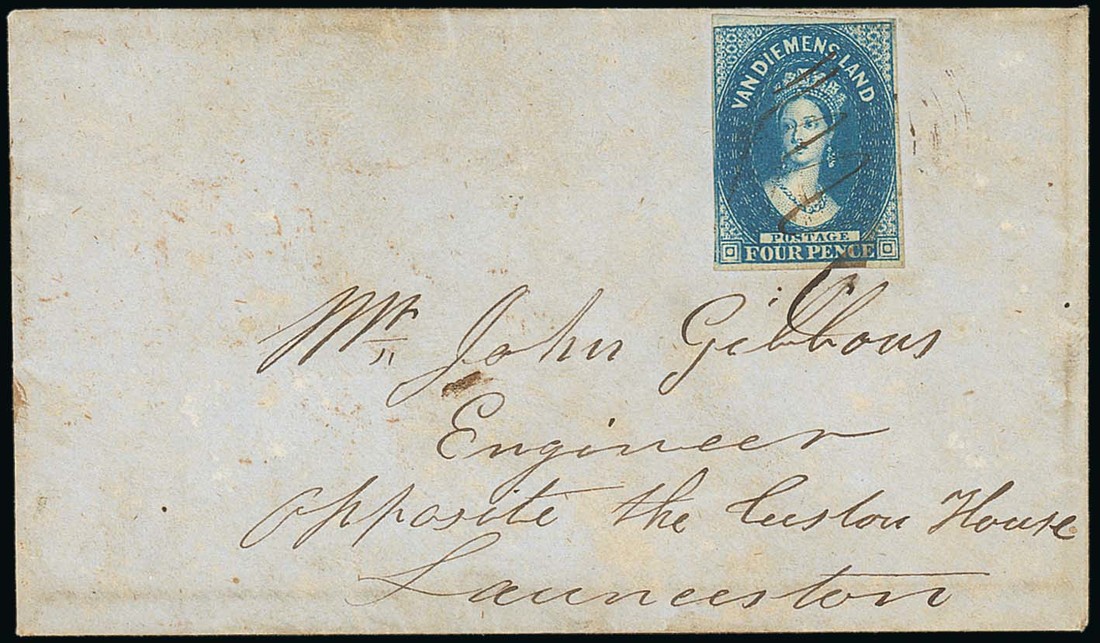 VAN DIEMENS LAND
POSTAGE
FOUR PENCE
Mr John Gibbons
Engineer
opposite the Custom House
Launceston